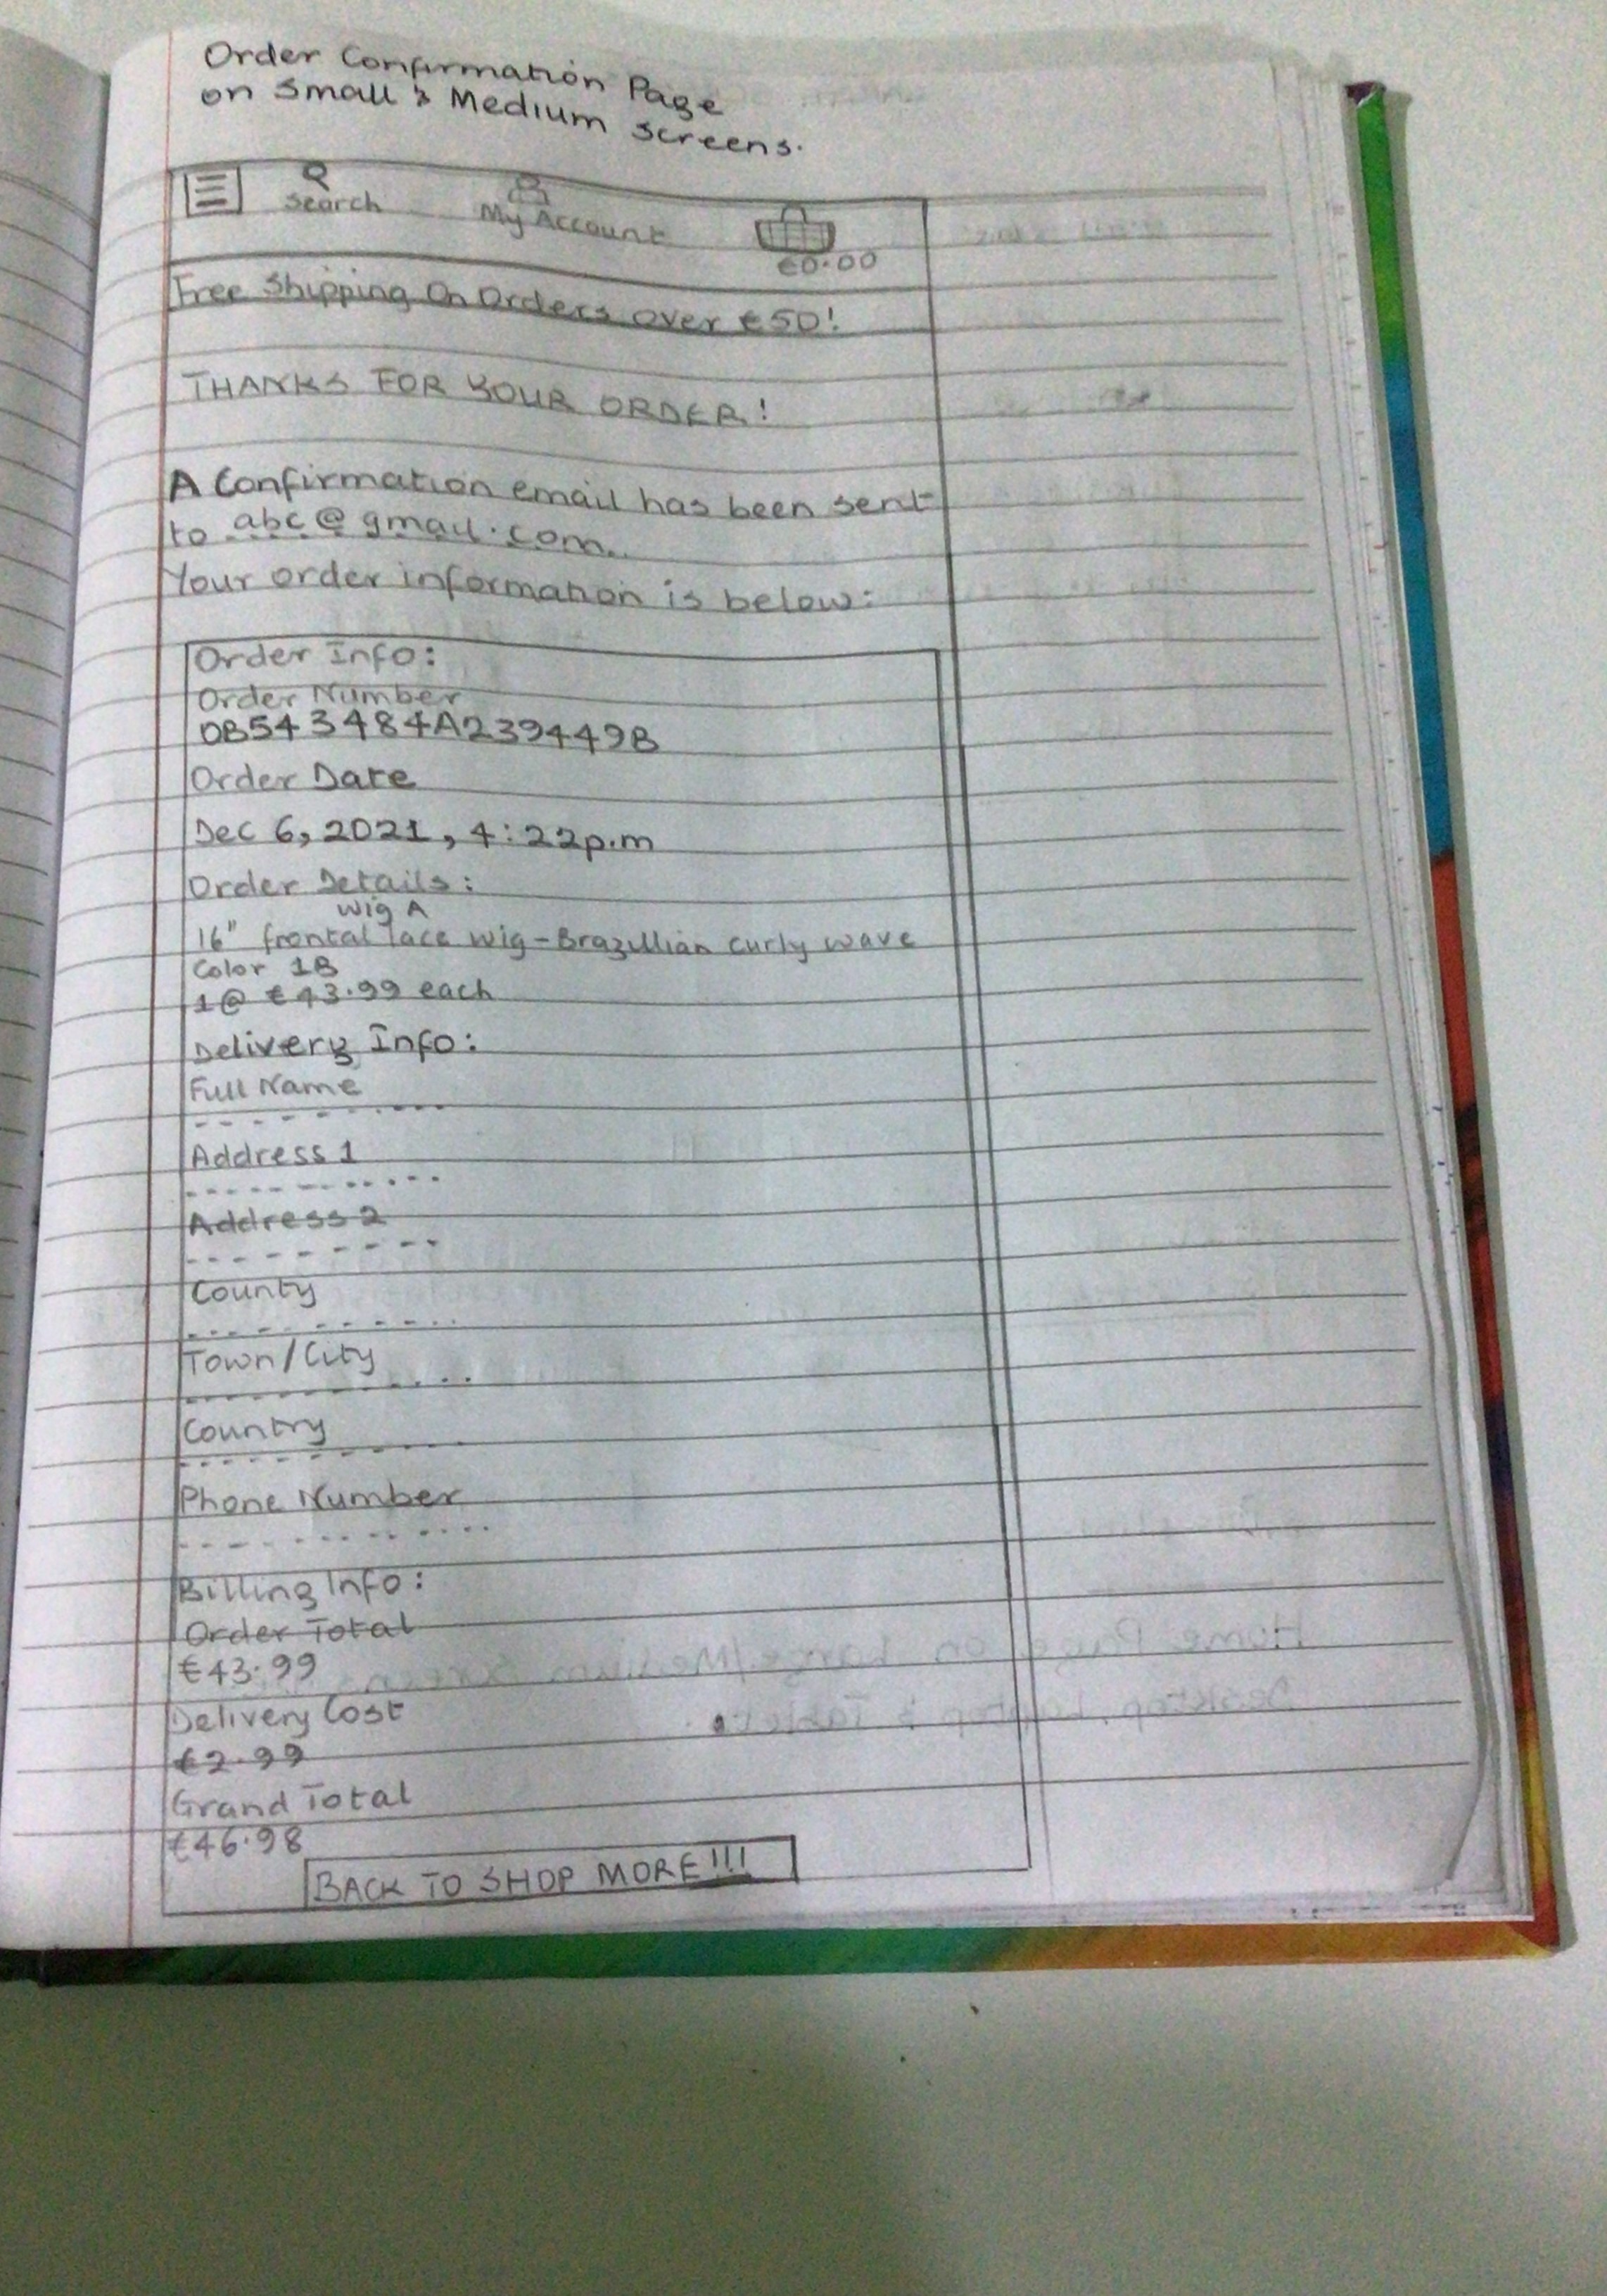 Order Confirmation Page
on Small & Medium screens.
Search
My Account
€0.00
Free Shipping On Orders over €50!
THANKS FOR YOUR ORDER!
A Confirmation email has been sent
to abc@gmail.com.
Your order information is below:
Order Info:
Order Number
0B543484A2394498
Order Date
Dec 6, 2021, 4:22p.m
Order Details:
Wig A
16" frontal lace wig - Brazillian curly wave
Color 1B
1@ €43.99 each
Delivery Info:
Full Name
Address 1
Address 2
County
Town/City
Country
Phone Number
Billing Info:
Order Total
€43.99
Delivery Cost
€2.99
Grand Total
€46.98
BACK TO SHOP MORE!!!